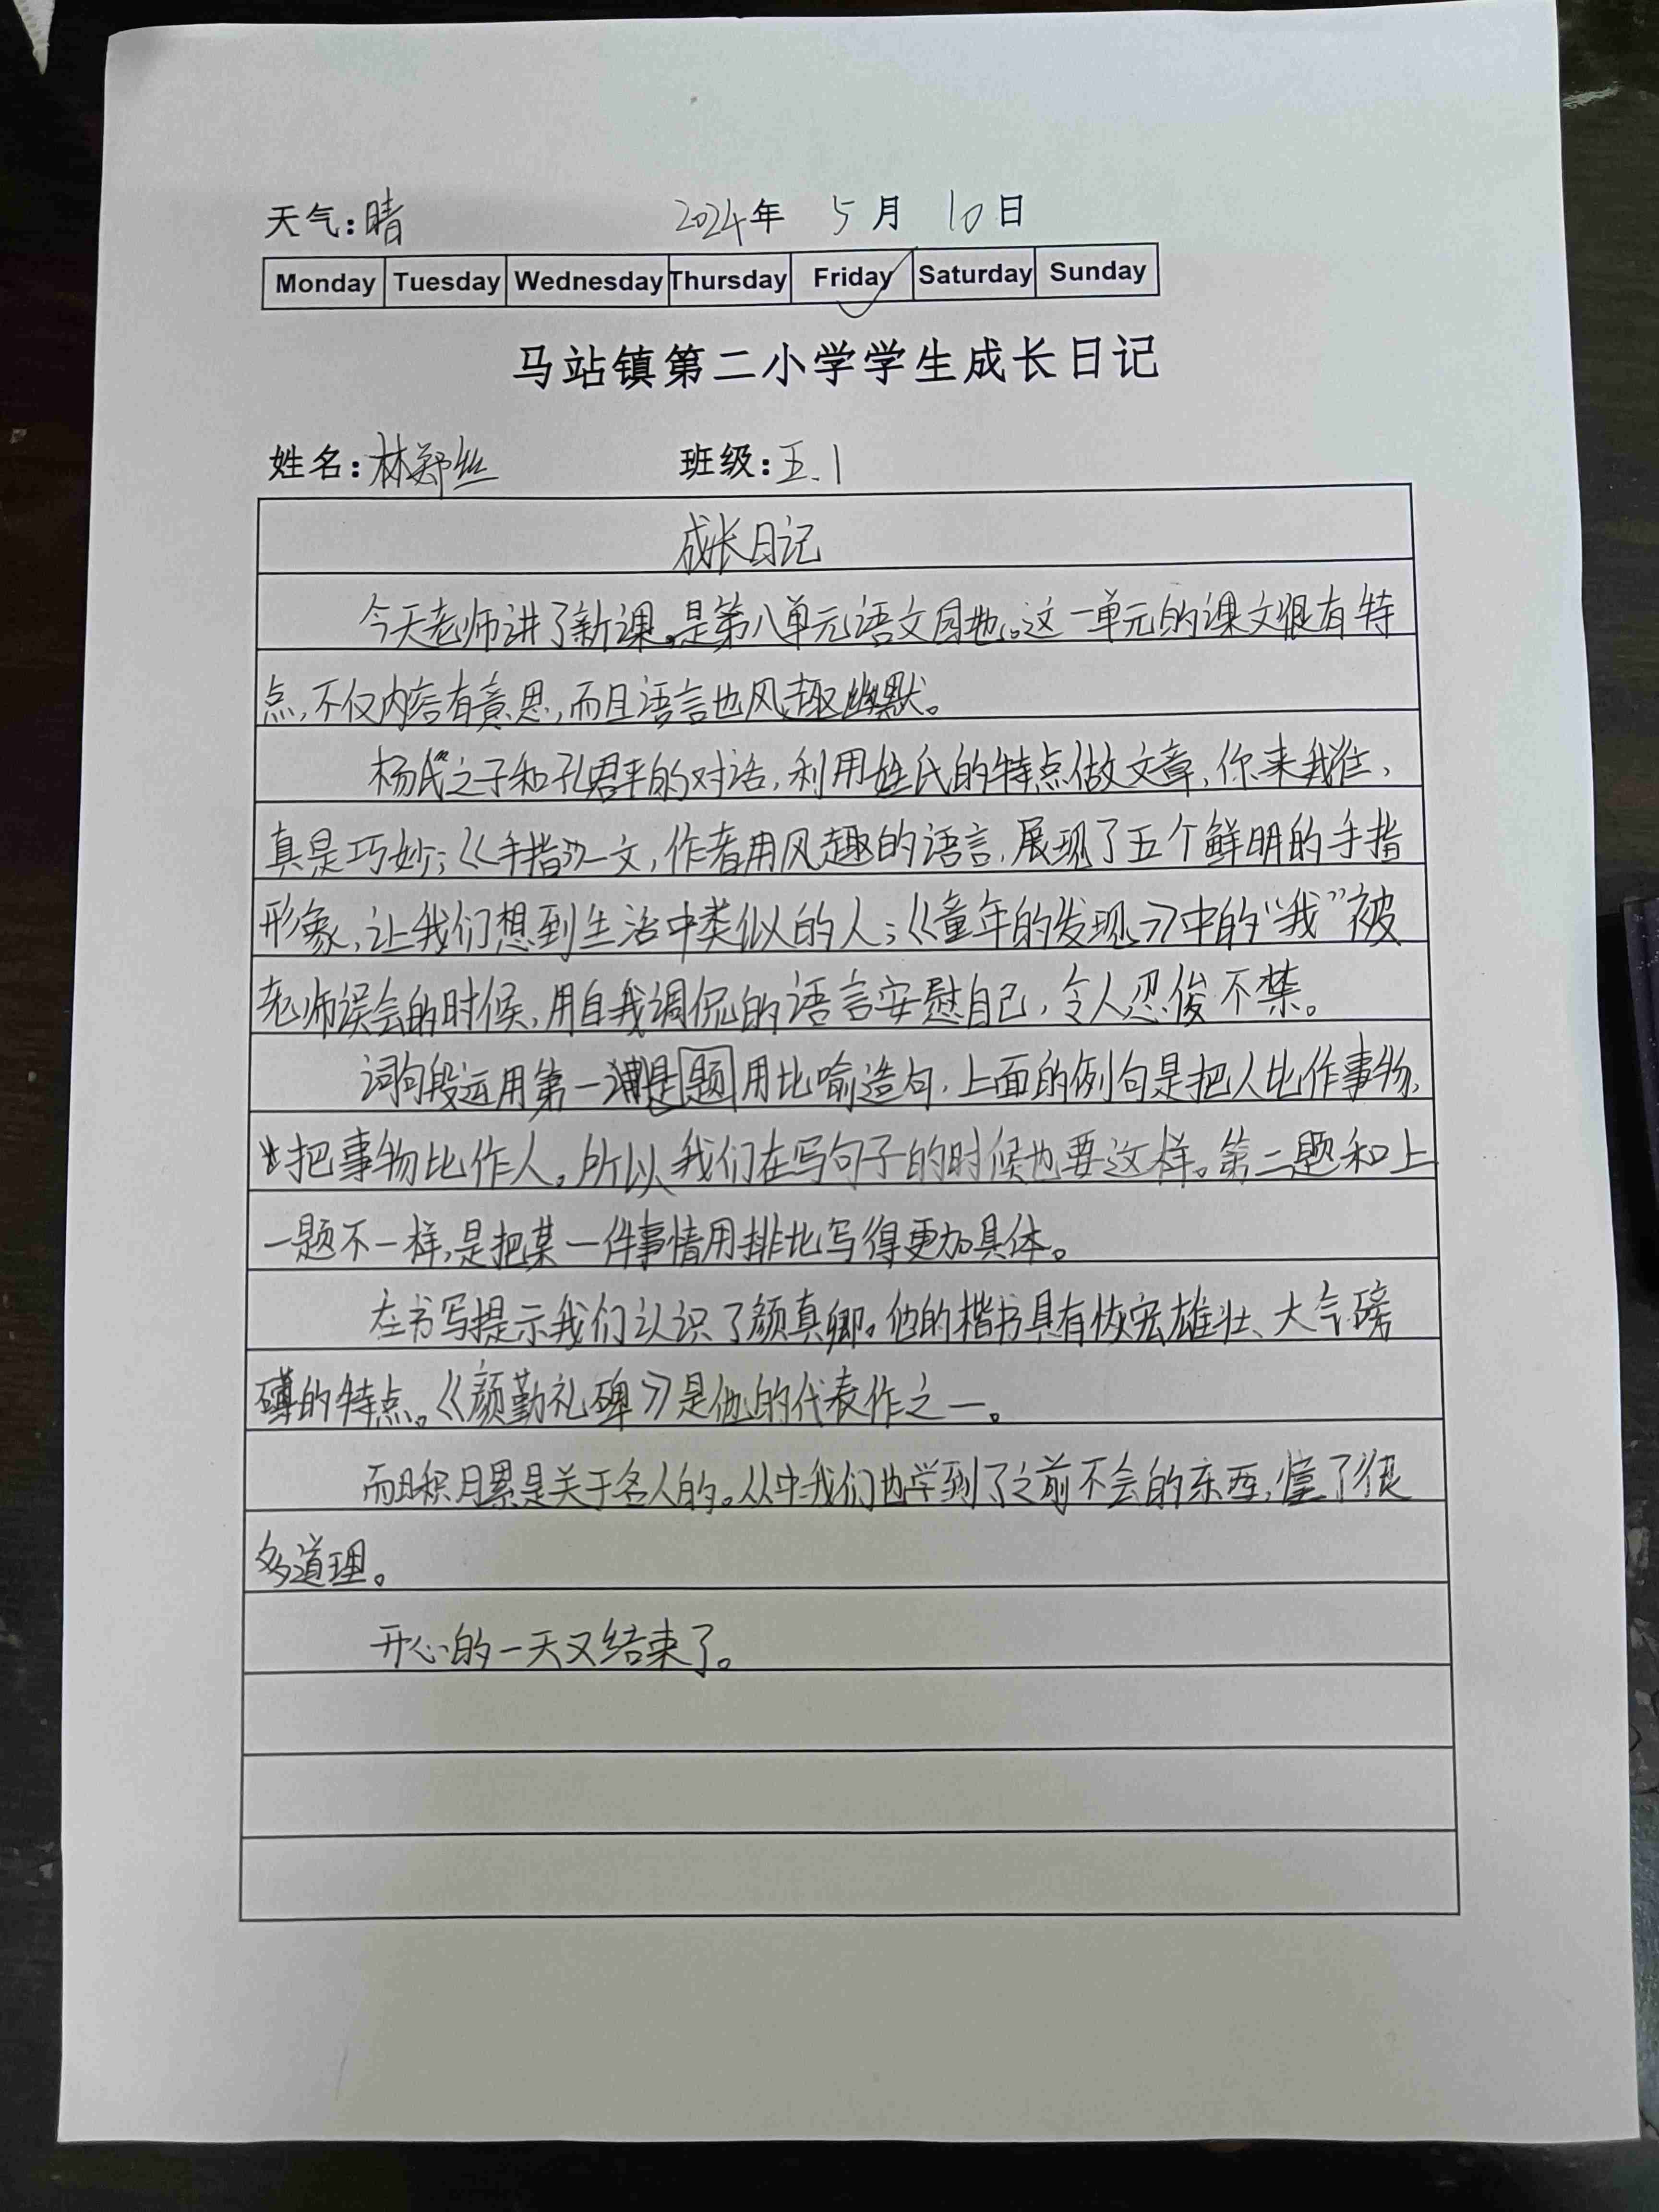 天气:晴 2024年 5月 10日
Monday Tuesday Wednesday Thursday Friday Saturday Sunday
马站镇第二小学学生成长日记
姓名:林郑丝 班级:五.1
成长日记
今天老师讲了新课。是第八单元语文园地。这一单元的课文很有特
点,不仅内容有意思,而且语言也风趣幽默。
杨氏之子和孔君平的对话,利用姓氏的特点做文章,你来我往,
真是巧妙;《手指》一文,作者用风趣的语言,展现了五个鲜明的手指
形象,让我们想到生活中类似的人;《童年的发现》中的“我”被
老师误会的时候,用自我调侃的语言安慰自己,令人忍俊不禁。
词句段运用第一题用比喻造句,上面的例句是把人比作事物,
把事物比作人。所以我们在写句子的时候也要这样。第二题和上
一题不一样,是把某一件事情用排比写得更加具体。
在书写提示我们认识了颜真卿。他的楷书具有恢宏雄壮、大气磅
礴的特点。《颜勤礼碑》是他的代表作之一。
而日积月累是关于名人的。从中我们也学到了之前不会的东西,懂了很
多道理。
开心的一天又结束了。